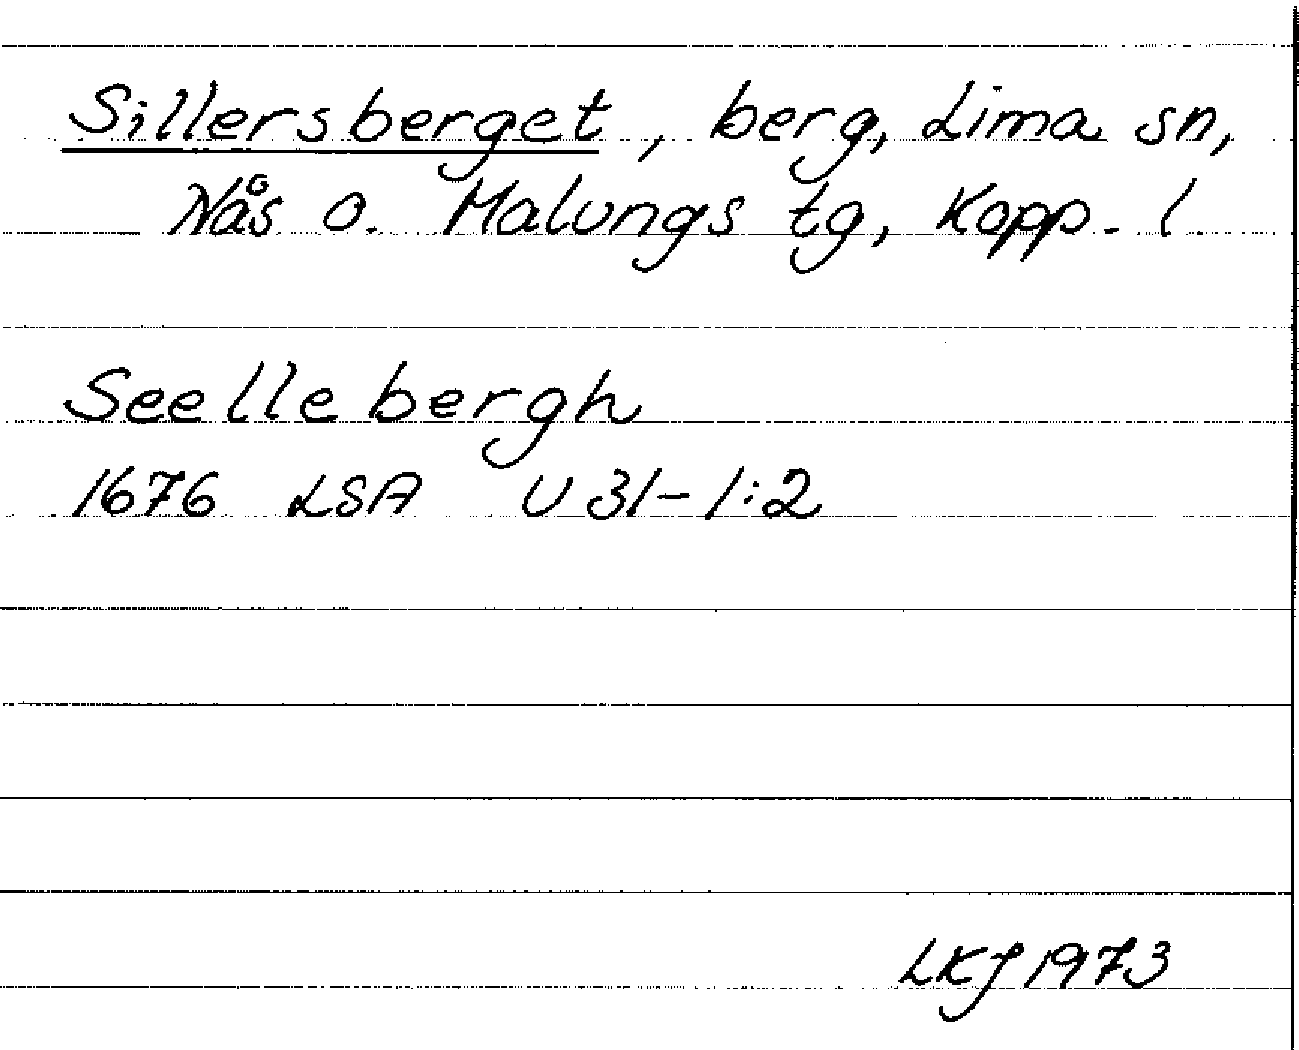 Sillersberget, berg, Lima sn,
Nås o. Malungs tg, Kopp. l
Seellebergh
1676 LSA U 31-1:2
LKJ 1973